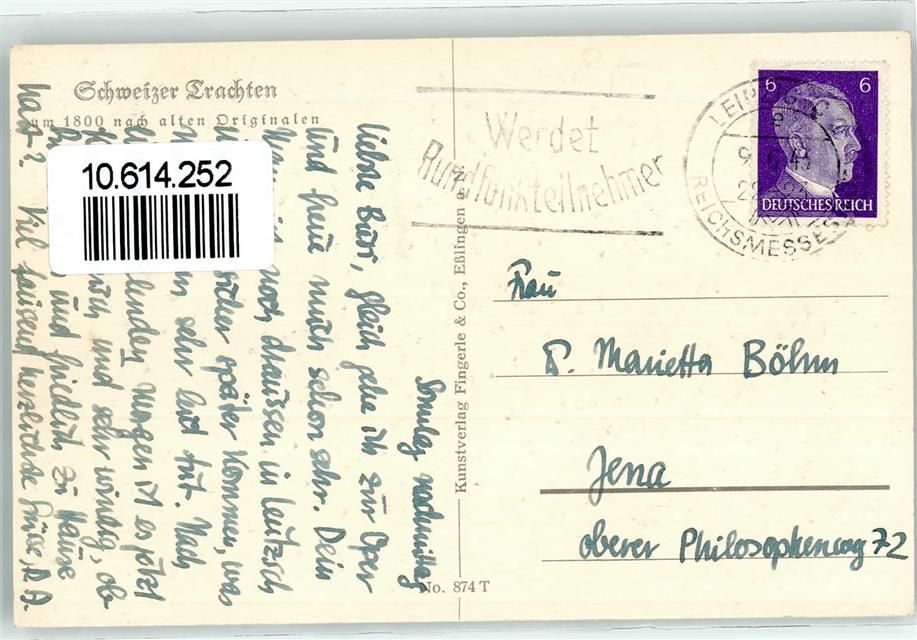 Schweizer Trachten
um 1800 nach alten Originalen
10.614.252
Werdet
Rundfunkteilnehmer
LEIPZIG
REICHSMESSESTADT
6 6
DEUTSCHES REICH
Kunstverlag Fingerle & Co., Eßlingen a. N.
No. 874 T
Frau
D. Marietta Böhm
Jena
oberer Philosophenweg 72
Sonntag nachmittag
liebste gleich gehe ich zur Oper
und freue mich schon sehr. Dein
noch draussen in Leutzsch
später kommen, was
sehr leid tut. Nach
linden morgen ist es jetzt
und sehr windig, ob
und friedlich zu Hause
hast? Viel tausend herzlichste Grüsse,